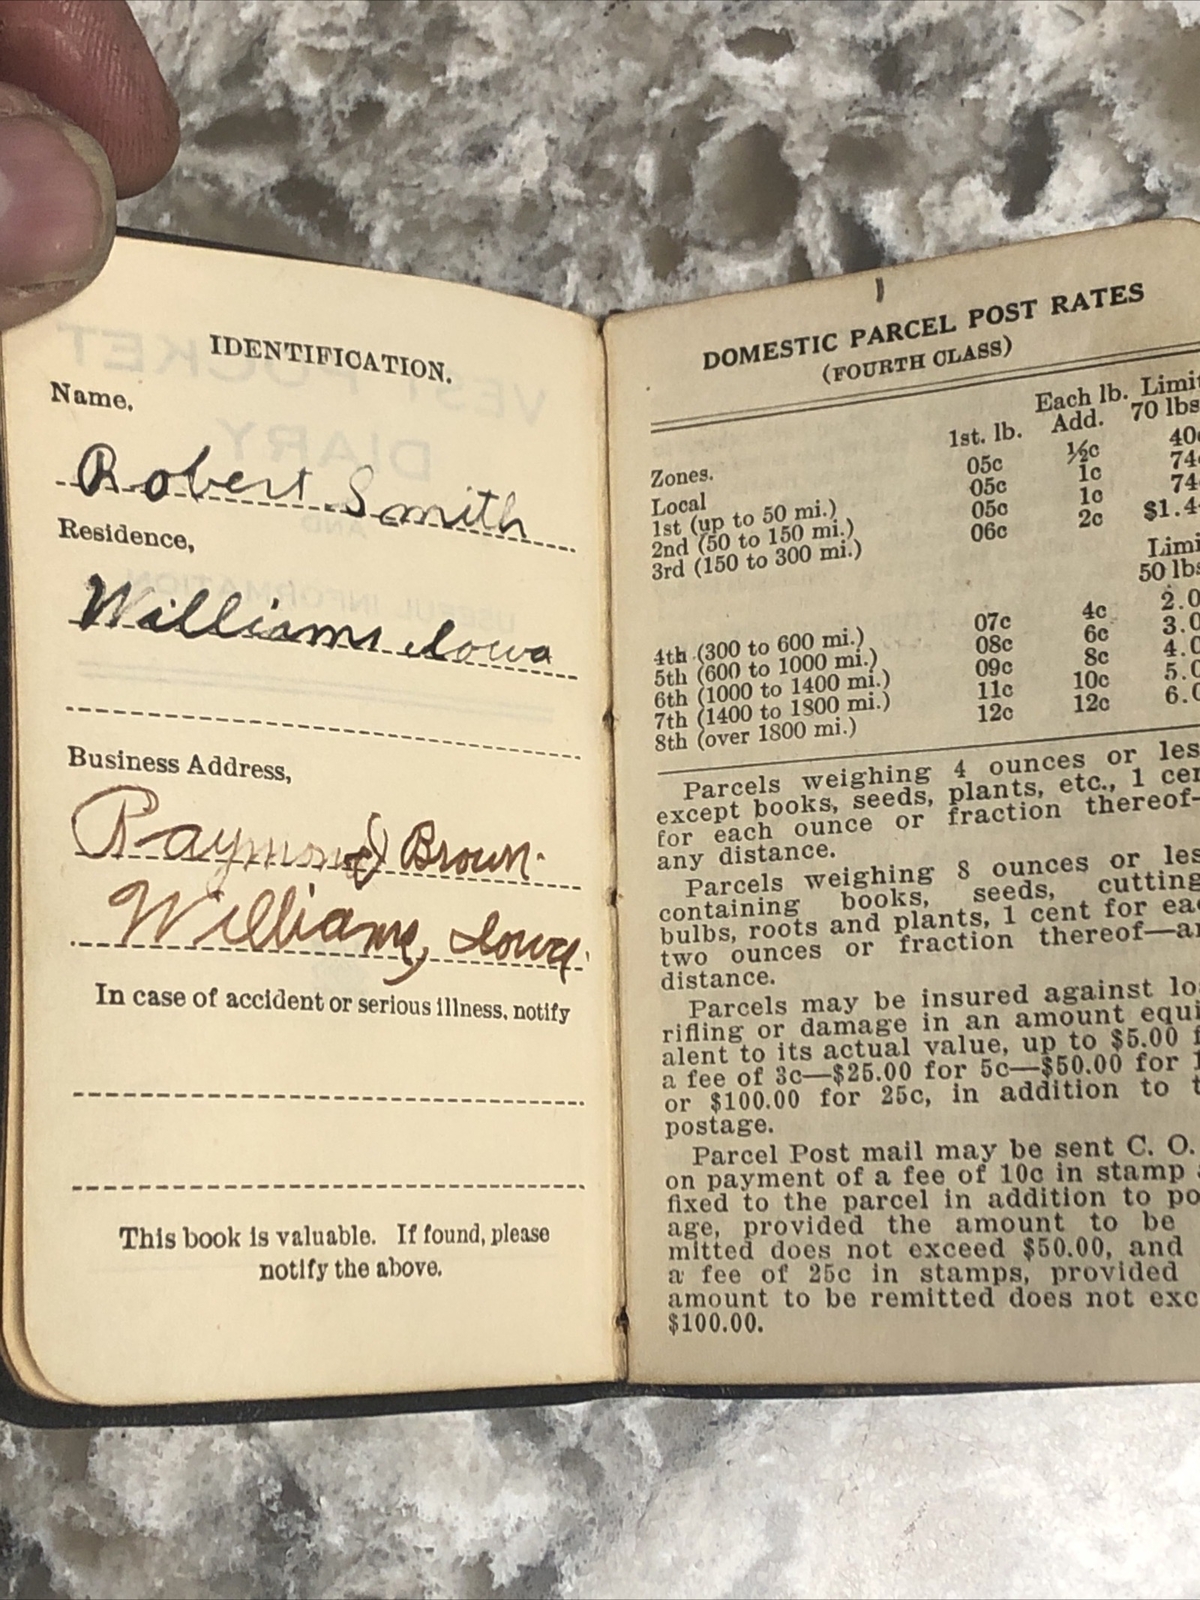 IDENTIFICATION.
Name,
Robert Smith
Residence,
Williams Iowa
Business Address,
Raymond Brown.
Williams, Iowa.
In case of accident or serious illness, notify
This book is valuable. If found, please
notify the above.
DOMESTIC PARCEL POST RATES
(FOURTH CLASS)
Zones. 1st. lb. Each lb. Add. Limit 70 lbs
Local 05c ½c 40c
1st (up to 50 mi.) 05c 1c 74
2nd (50 to 150 mi.) 05c 1c 74
3rd (150 to 300 mi.) 06c 2c $1.4
Limi
50 lbs
4th (300 to 600 mi.) 07c 4c 2.0
5th (600 to 1000 mi.) 08c 6c 3.0
6th (1000 to 1400 mi.) 09c 8c 4.0
7th (1400 to 1800 mi.) 11c 10c 5.0
8th (over 1800 mi.) 12c 12c 6.0
Parcels weighing 4 ounces or les
except books, seeds, plants, etc., 1 cen
for each ounce or fraction thereof—
any distance.
Parcels weighing 8 ounces or les
containing books, seeds, cutting
bulbs, roots and plants, 1 cent for eac
two ounces or fraction thereof—an
distance.
Parcels may be insured against los
rifling or damage in an amount equi
alent to its actual value, up to $5.00 f
a fee of 3c—$25.00 for 5c—$50.00 for 1
or $100.00 for 25c, in addition to t
postage.
Parcel Post mail may be sent C. O.
on payment of a fee of 10c in stamp
fixed to the parcel in addition to po
age, provided the amount to be
mitted does not exceed $50.00, and
a fee of 25c in stamps, provided
amount to be remitted does not exc
$100.00.